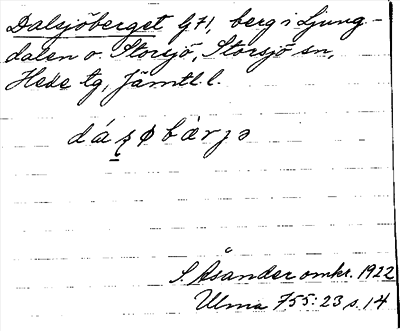 Dalsjöberget G71, berg i Ljung-
dalen o. Storsjö, Storsjö sn,
Hede tg, Jämtl. l.
S. Åsander omkr. 1922
Ulma 755:23 s. 14